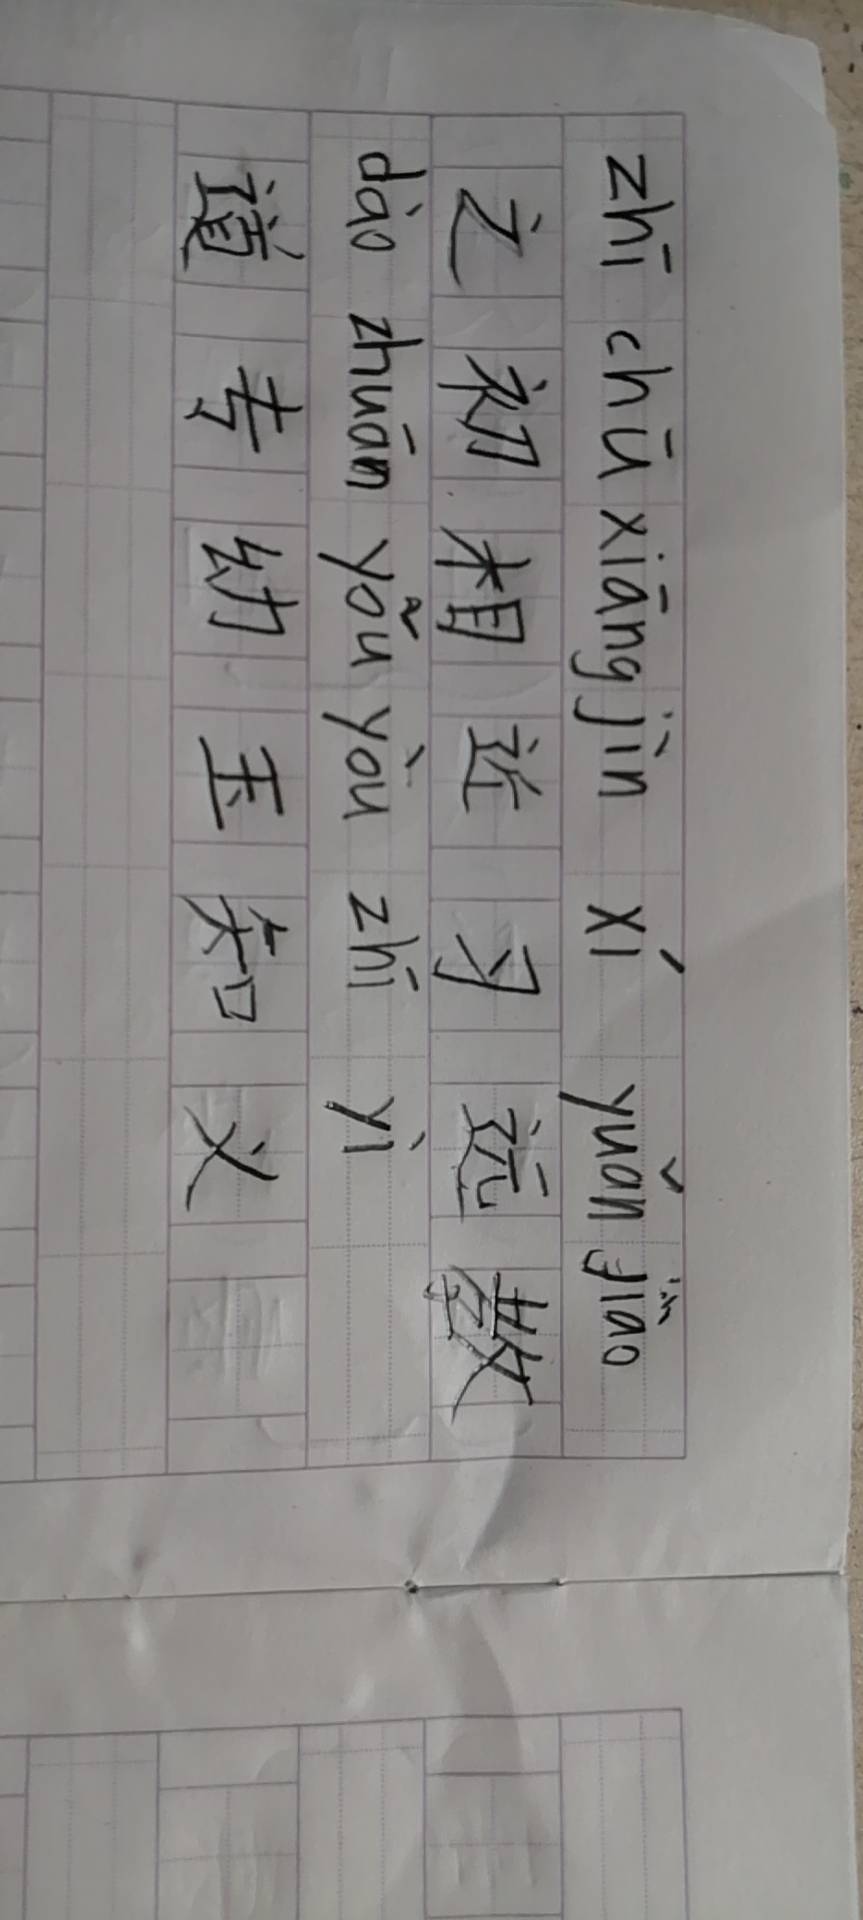 zhī chū xiāng jìn xí yuǎn jiāo
之初相近习远教
dào zhuān yǒu yòu zhī yì
道专幼玉知义